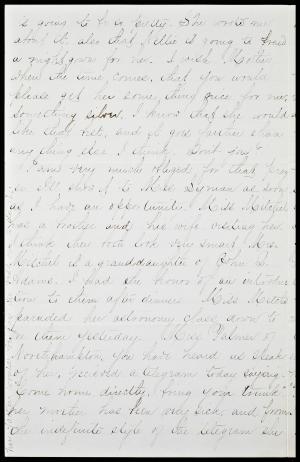 is going to be so pretty. She wrote me
about it, also that Nellie is going to braid
a night gown for her. I wish Mother,
when the time comes, that you would
please get her some thing nice for me,
something silver. I know that she would
like that best, and it goes farther than
any thing else I think, don't you?
I am very much obliged for that
I'll show it to Miss Lyman as soon
as I have an opportunity. Miss Mitchel
has a brother and his wife visiting her.
I think they both look very smart. Mrs.
Mitchel is a granddaughter of John Q.
Adams. I had the honor of an introduc
tion to them after dinner. Miss Mitchel
paraded her astronomy class down to
see them yesterday. Miss Palmer of
Northampton, you have heard us speak
of her, received a telegram today saying,
"Come home directly, bring your trunk."
her mother has been very sick, and from
the indefinite style of the telegram she